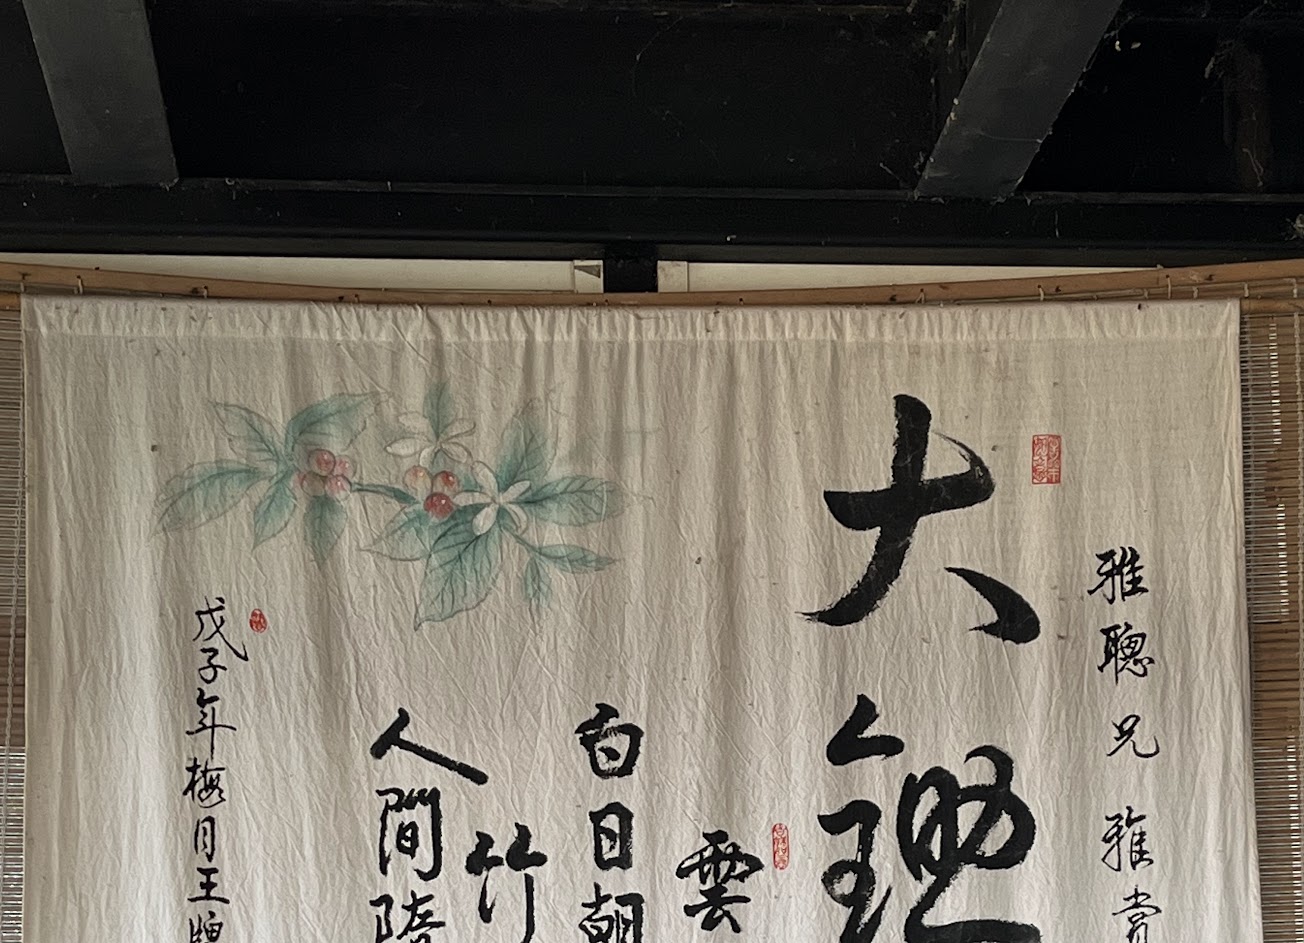 雅聰兄雅賞
大鋤
雲
白日朝
竹
人間
戊子年梅月王